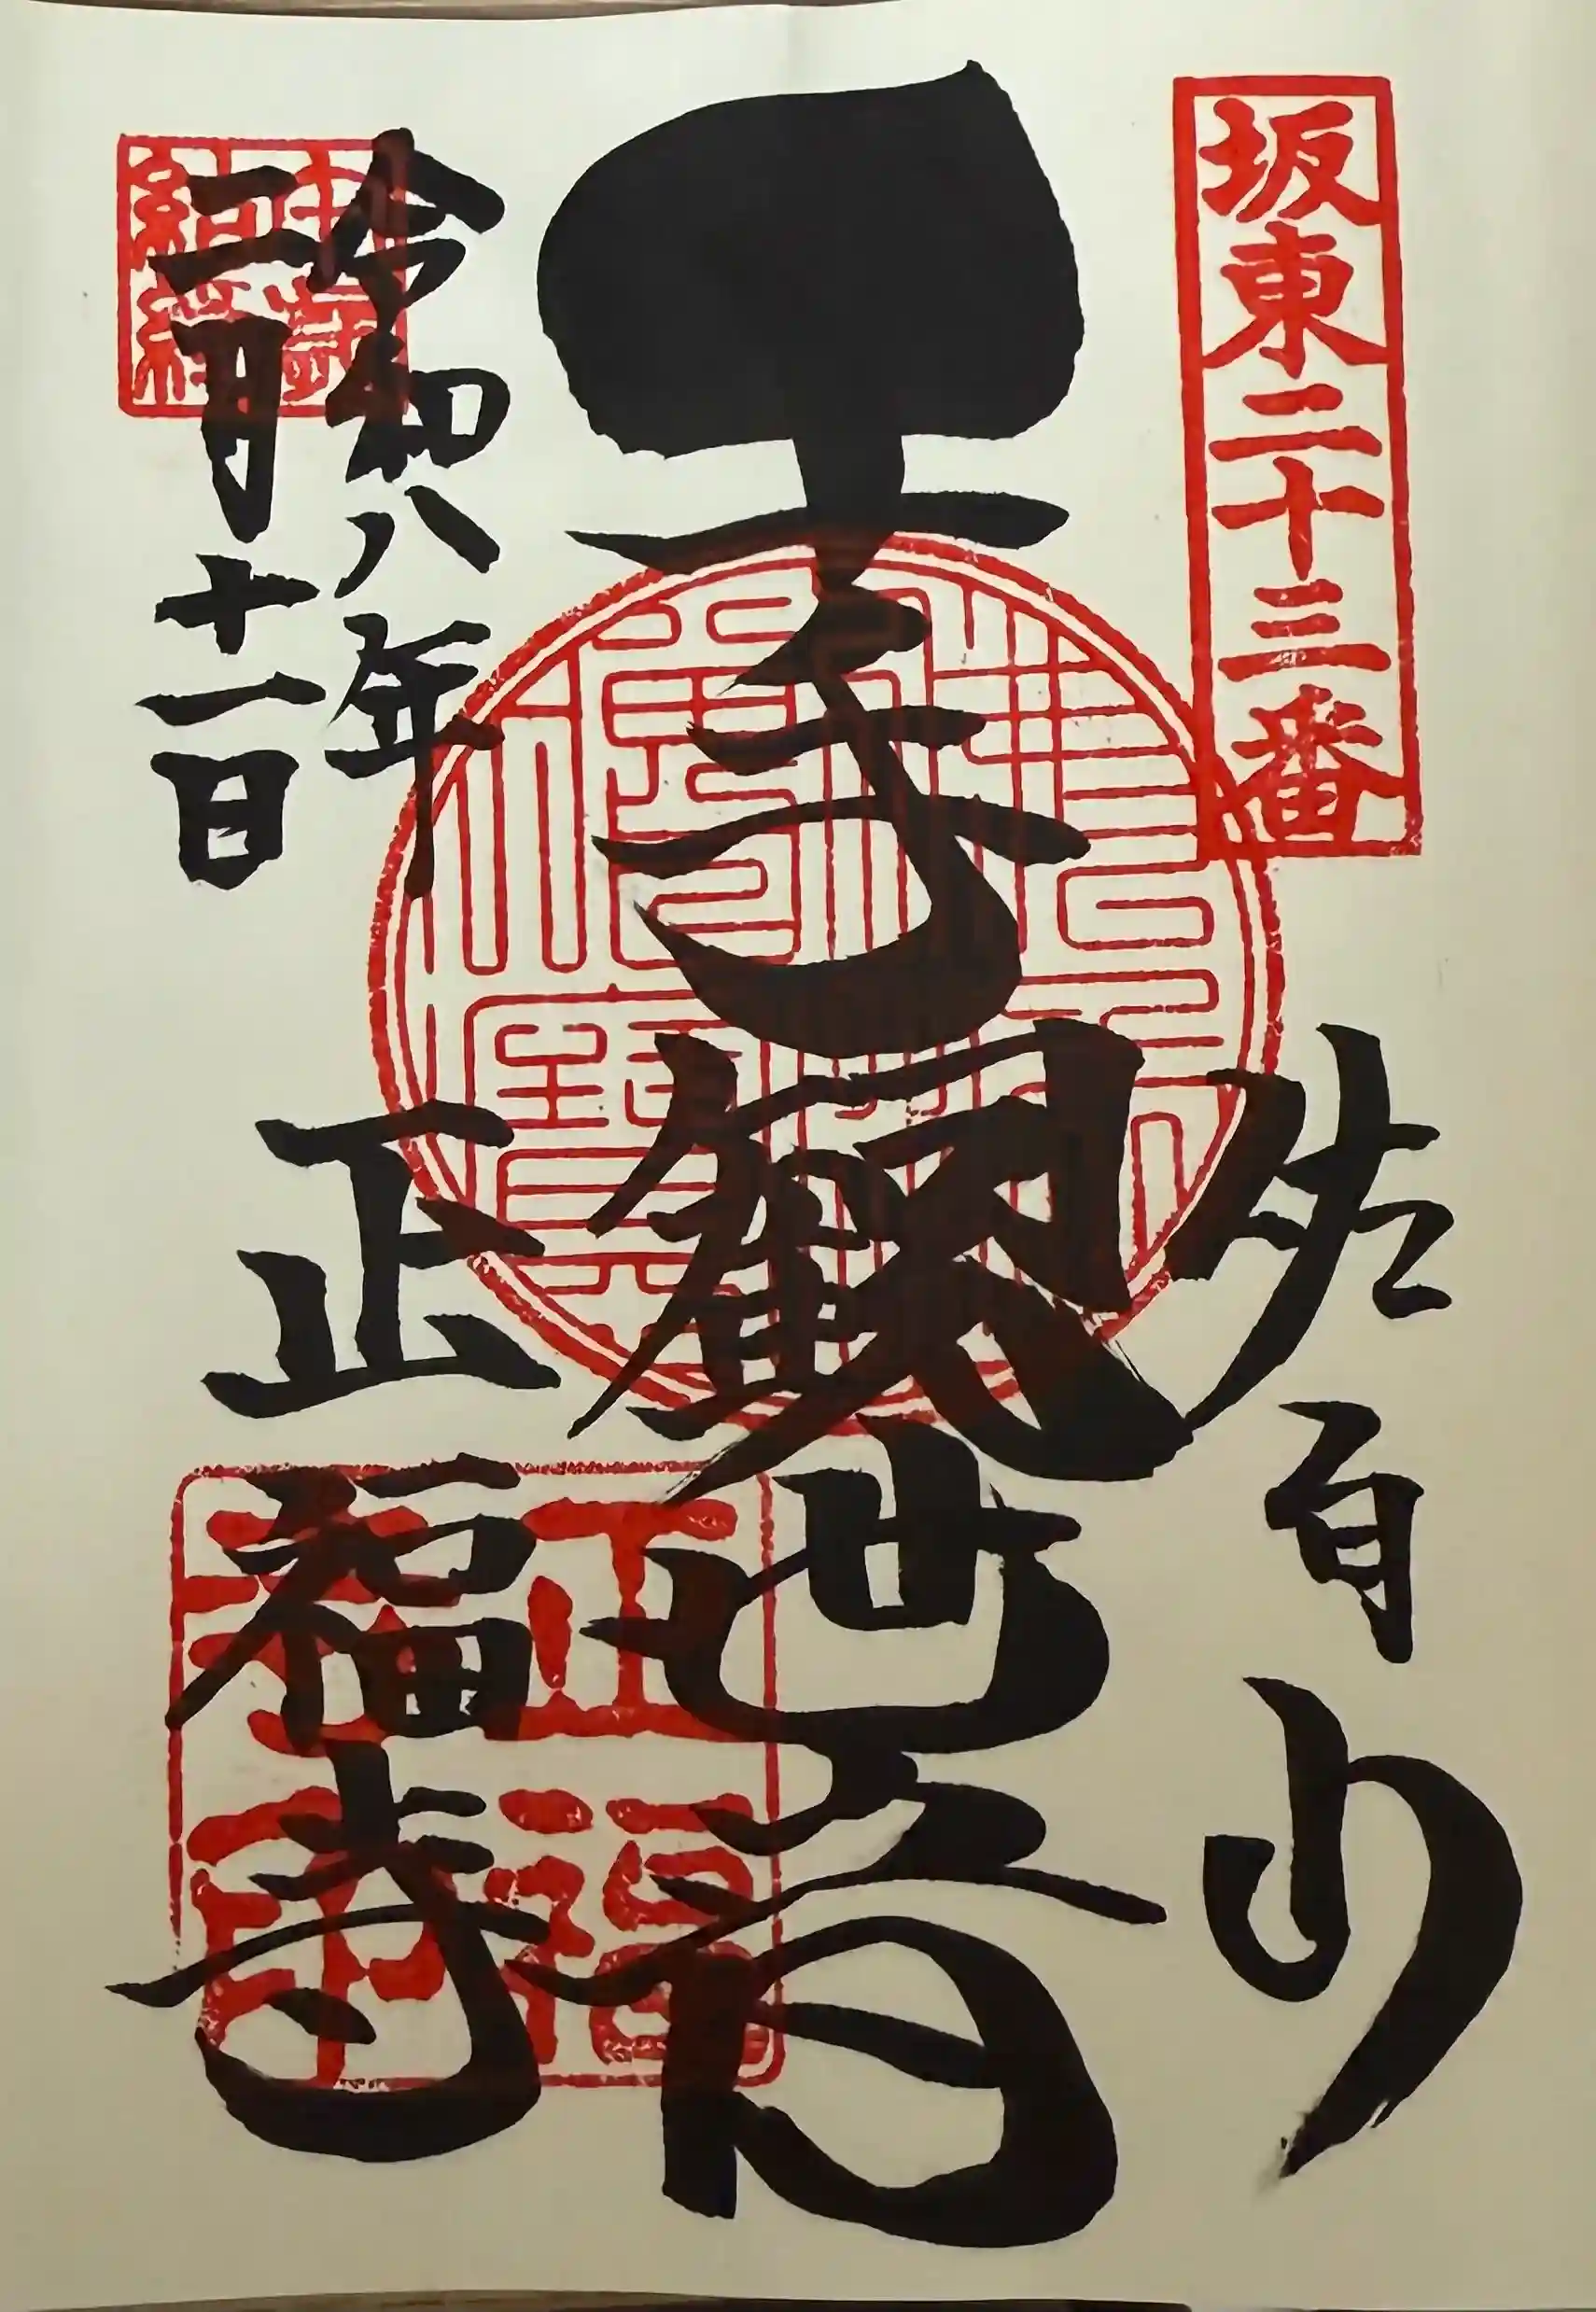 坂東二十三番
佐白山
千手観世音
令和八年
二月十一日
正福寺
正福
寺印